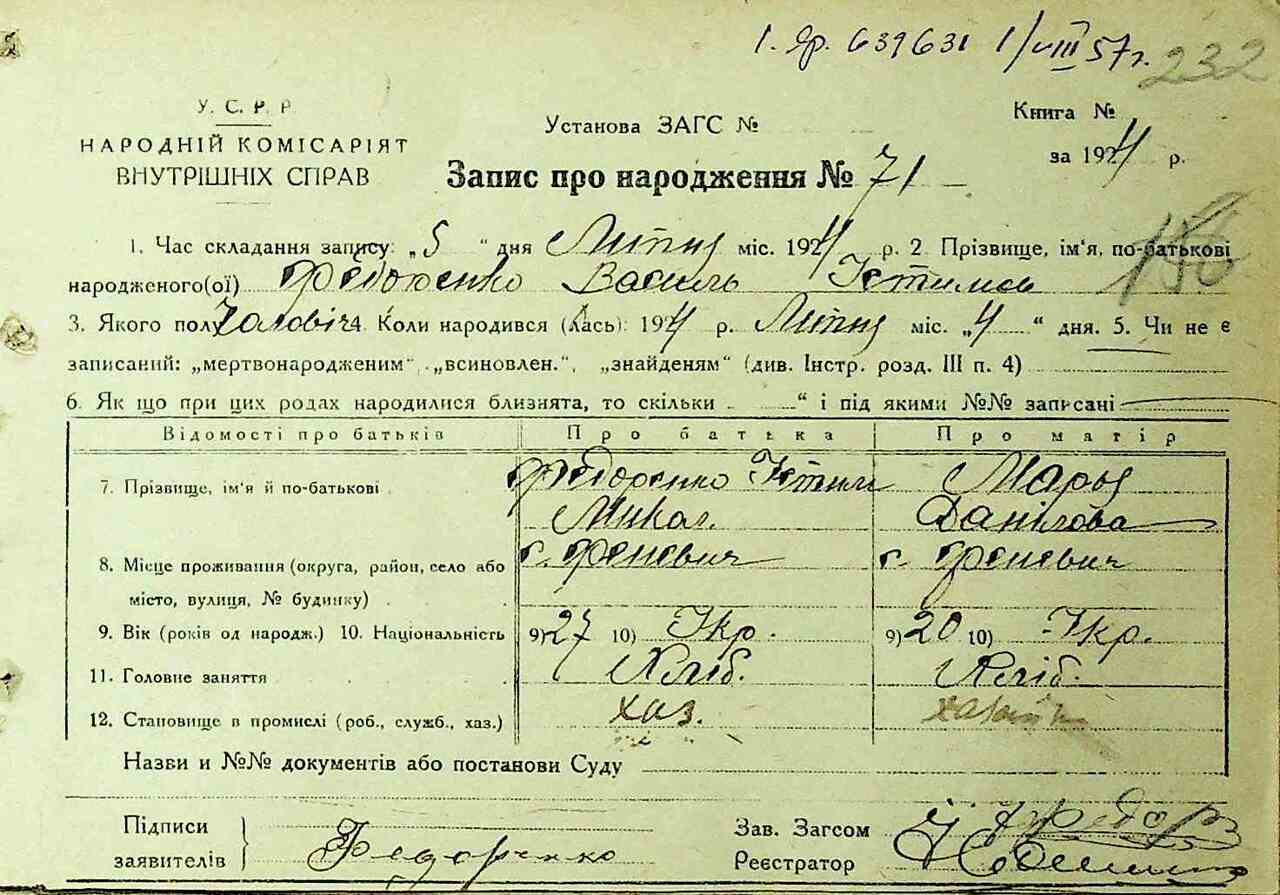 1. Яр. 639631 1/VIII 57 г.
232
У. С. Р. Р.
НАРОДНІЙ КОМІСАРІЯТ
ВНУТРІШНІХ СПРАВ
Установа ЗАГС №
Книга №
за 1924 р.
Запис про народження № 71
156
1. Час складання запису: „5“ дня Липня міс. 1924 р. 2. Прізвище, ім'я, по-батькові
народженого(ої) Федоренко Василь Устимов
3. Якого полу Чоловіч 4. Коли народився (лась): 1924 р. Липня міс. „4“ дня. 5. Чи не є
записаний: „мертвонародженим“ „всиновлен.“, „знайденям“ (див. Інстр. розд. III п. 4)
6. Як що при цих родах народилися близнята, то скільки “ і під якими №№ записані
Відомості про батьків Про батька Про матір
7. Прізвище, ім'я й по-батькові Федоренко Устим Марья
Микол. Данілова
8. Місце проживання (округа, район, село або с. Феневич с. Феневич
місто, вулиця, № будинку)
9. Вік (років од народж.) 10. Національність 9) 27 10) Укр. 9) 20 10) Укр.
11. Головне заняття Хліб. Хліб.
12. Становище в промислі (роб., служб., хаз.) хаз.
Назви и №№ документів або постанови Суду
Підписи
заявителів Федорченко
Зав. Загсом
Реєстратор